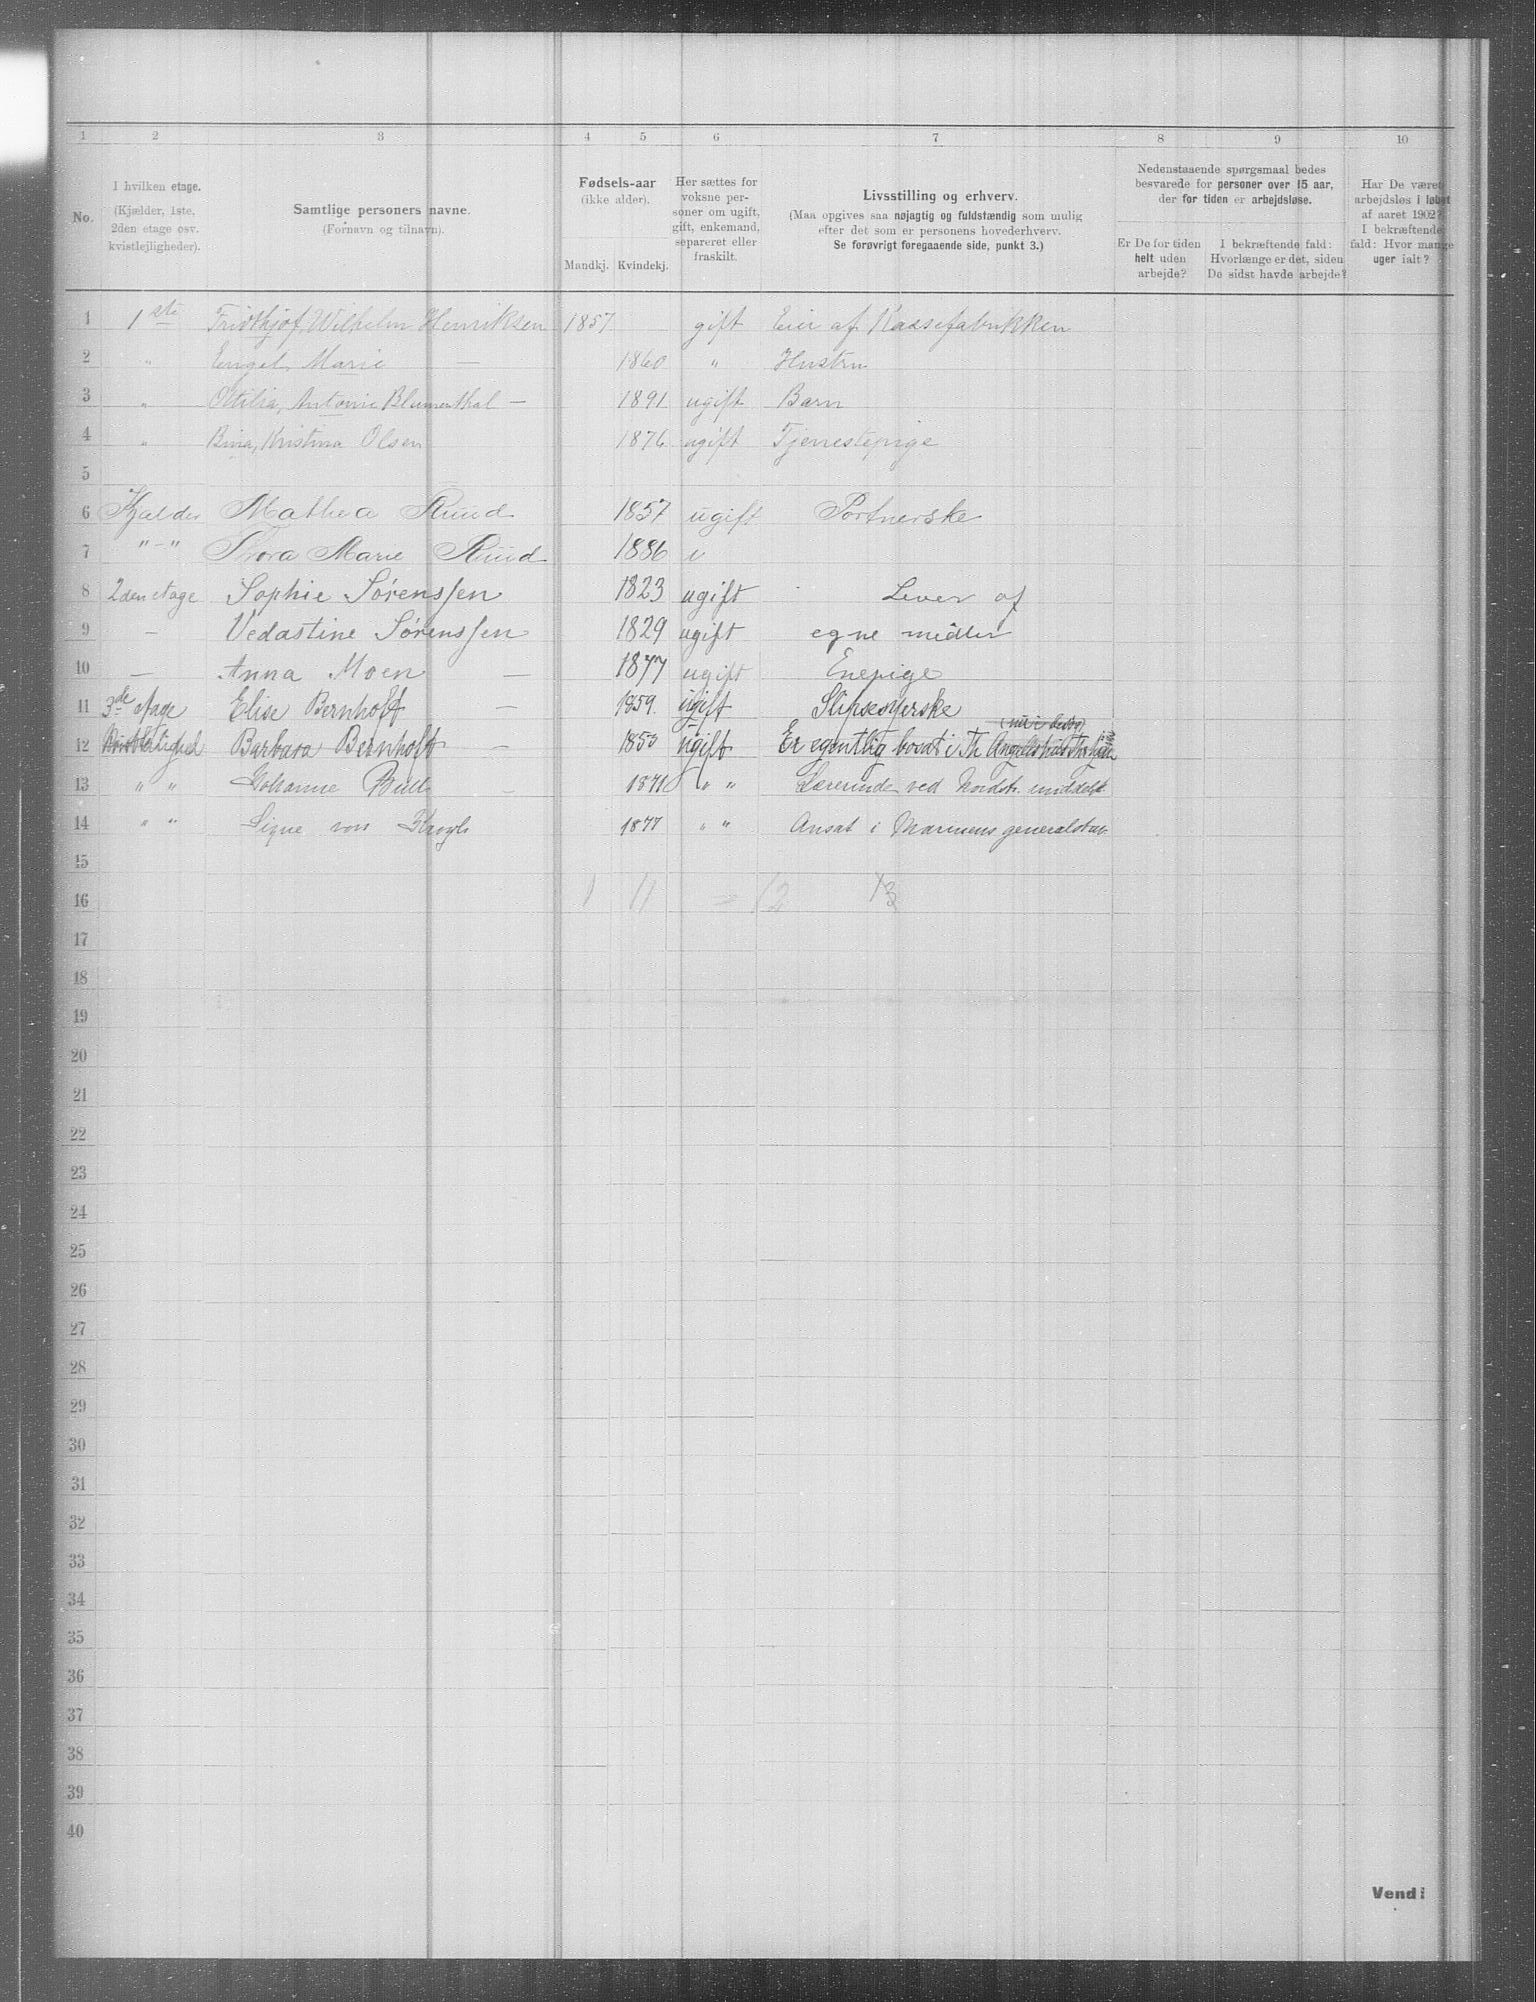 1 2 3 4 5 6 7 8 9 10
No.
I hvilken etage.
(Kjælder, 1ste,
2den etage osv.
kvistlejligheder).
Samtlige personers navne.
(Fornavn og tilnavn).
Fødsels-aar
(ikke alder).
Mandkj. Kvindekj.
Her sættes for
voksne per-
soner om ugift,
gift, enkemand,
separeret eller
fraskilt.
Livsstilling og erhverv.
(Maa opgives saa nøjagtig og fuldstændig som mulig
efter det som er personens hovederhverv.
Se forøvrigt foregaaende side, punkt 3.)
Nedenstaaende spørgsmaal bedes
besvarede for personer over 15 aar,
der for tiden er arbejdsløse.
Er De for tiden
helt uden
arbejde?
I bekræftende fald:
Hvorlænge er det, siden
De sidst havde arbejde?
Har De været
arbejdsløs i løbet
af aaret 1902?
I bekræftende
fald: Hvor mange
uger ialt?
1 1ste Fridthjof Wilhelm Henriksen 1857 gift Eier af Kassefabrikken
2 " Engel Marie — 1860 " Hustru
3 " Ottilia, Antonie Blumenthal — 1891 ugift Barn
4 " Bina, Kristina Olsen 1876 ugift Tjenestepige
5
6 Kjælder Mathea Ruud 1857 ugift Portnerske
7 "-" Thora Marie Ruud 1886 u
8 2den etage Sophie Sørenssen 1823 ugift Lever af
9 — Vedastine Sørenssen 1829 ugift egne midler
10 — Anna Moen — 1877 ugift Enepige
11 3de etage Elise Bernhoft — 1859 ugift Slipsesyerske
12 Barbara Bernhoft — 1853 ugift Er egentlig bosat i Th
13 " " Johanne Bull — 1871 " " Lærerinde ved Nordstr.
14 " " Signe von Krogh 1877 " " Ansat i Marinens generalstab
15
16 1 11 = 12 13
17
18
19
20
21
22
23
24
25
26
27
28
29
30
31
32
33
34
35
36
37
38
39
40
Vend!